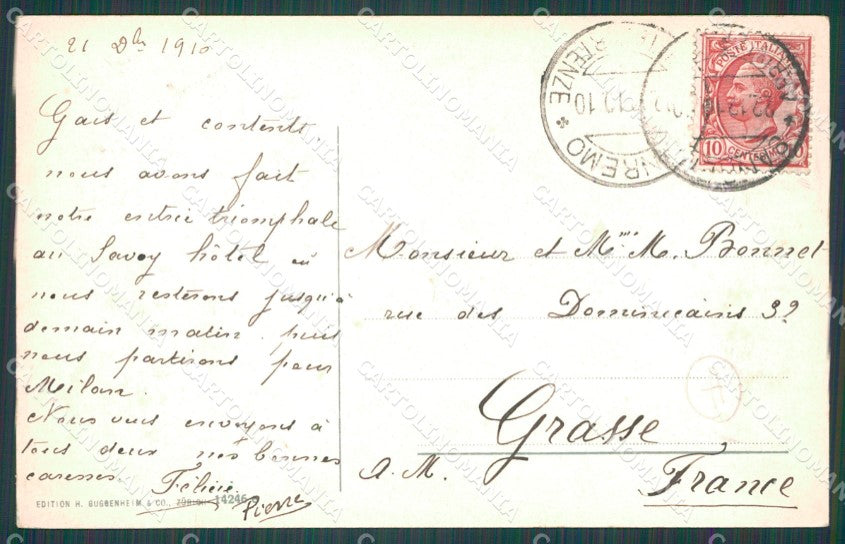 21 Dbr 1910
Gais et contents
nous avons fait
notre entrée triomphale
au Savoy hôtel où
nous resterons jusqu'à
demain matin. puis
nous partirons pour
Milan.
Nous vous envoyons à
tous deux nos bonnes
caresses.
Pierre
Monsieur et Mme M. Bonnet
rue des Dominicains 32
Grasse
A. M.
France
EDITION H. GUGGENHEIM & CO., ZÜRICH 14246
POSTE ITALIANE
10 CENT
SANREMO
PARTENZE
CARTOLINOMANIA